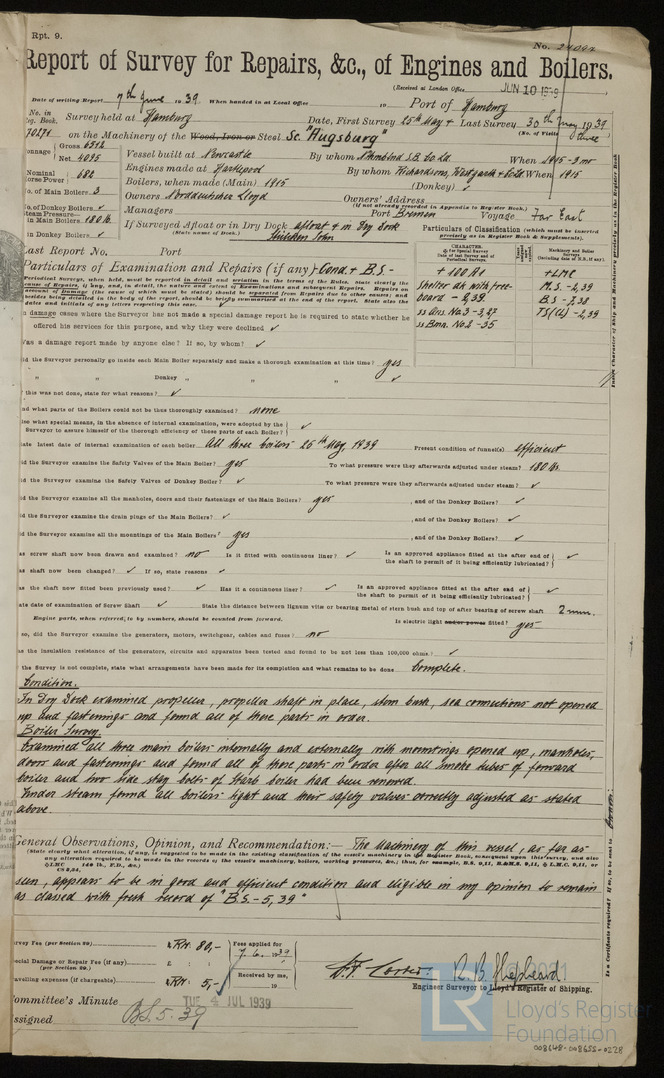 Rpt. 9.
No. 24092
Report of Survey for Repairs, &c., of Engines and Boilers.
(Received at London Office JUN 10 1939
Date of writing Report 7th June 1939. When handed in at Local Office 19 Port of Hamburg
No. in Reg. Book. Survey held at Hamburg Date, First Survey 25th May & Last Survey 30th May 1939
70271 on the Machinery of the Wood, Iron or Steel Sc. "Augsburg" (No. of Visits three
Tonnage Gross 6512
Net 4095
Vessel built at Newcastle By whom Northmbld S.B. Co Ld. When 1915-3 mo
Nominal Horse Power 682
Engines made at Hartlepool By whom Richardsons, Westgarth & Co Ld When 1915
No. of Main Boilers 3
Boilers, when made (Main) 1915 (Donkey) ✓
No. of Donkey Boilers ✓
Owners Norddeutscher Lloyd Owners' Address
(if not already recorded in Appendix to Register Book.)
Steam Pressure—
in Main Boilers 180 lb
Managers Port Bremen Voyage Far East
in Donkey Boilers ✓
If Surveyed Afloat or in Dry Dock afloat & in Dry Dock
(State name of Dock.) Stülcken Sohn
Particulars of Classification (which must be inserted precisely as in Register Book & Supplements).
Last Report No. Port
Particulars of Examination and Repairs (if any) Cond. & B.S.-
CHARACTER.
+ 100 A1
Shelter dk with free-
board - 2,39.
ss Ans. No.3-3,27
ss Bmn. No.2 -35
Machinery and Boiler Surveys
+LMC
M.S.-2,39
B.S.-7,38
TS(CL)-2,39
In damage cases where the Surveyor has not made a special damage report he is required to state whether he
offered his services for this purpose, and why they were declined ✓
Was a damage report made by anyone else? If so, by whom? ✓
Did the Surveyor personally go inside each Main Boiler separately and make a thorough examination at this time? yes
" " Donkey " " " ✓
If this was not done, state for what reasons? ✓
And what parts of the Boilers could not be thoroughly examined? none
Also what special means, in the absence of internal examination, were adopted by the
Surveyor to assure himself of the thorough efficiency of those parts of each Boiler? ✓
State latest date of internal examination of each boiler All three boilers 25th May, 1939 Present condition of funnel(s) efficient
Did the Surveyor examine the Safety Valves of the Main Boiler? yes To what pressure were they afterwards adjusted under steam? 180 lb.
Did the Surveyor examine the Safety Valves of Donkey Boiler? ✓ To what pressure were they afterwards adjusted under steam? ✓
Did the Surveyor examine all the manholes, doors and their fastenings of the Main Boilers? yes , and of the Donkey Boilers? ✓
Did the Surveyor examine the drain plugs of the Main Boilers? ✓ , and of the Donkey Boilers? ✓
Did the Surveyor examine all the mountings of the Main Boilers? yes , and of the Donkey Boilers? ✓
Has screw shaft now been drawn and examined? no Is it fitted with continuous liner? ✓ Is an approved appliance fitted at the after end of
the shaft to permit of it being efficiently lubricated? ✓
Has shaft now been changed? ✓ If so, state reasons ✓
Has the shaft now fitted been previously used? ✓ Has it a continuous liner? ✓ Is an approved appliance fitted at the after end of
the shaft to permit of it being efficiently lubricated? ✓
State date of examination of Screw Shaft ✓ State the distance between lignum vitæ or bearing metal of stern bush and top of after bearing of screw shaft 2 mm.
Engine parts, when referred to by numbers, should be counted from forward. Is electric light and/or power fitted? yes
If so, did the Surveyor examine the generators, motors, switchgear, cables and fuses? no
Has the insulation resistance of the generators, circuits and apparatus been tested and found to be not less than 100,000 ohms? ✓
If the Survey is not complete, state what arrangements have been made for its completion and what remains to be done Complete.
Condition.
In Dry Dock examined propeller, propeller shaft in place, stern bush, sea connections not opened
up and fastenings and found all of these parts in order.
Boiler Survey.
Examined all three main boilers internally and externally with mountings opened up, manholes,
doors and fastenings and found all of these parts in order after all smoke tubes of forward
boiler and two side stay bolts of Starb boiler had been renewed.
Under steam found all boilers tight and their safety valves correctly adjusted as stated
above.
General Observations, Opinion, and Recommendation:— The Machinery of this vessel, as far as
(State clearly what alteration, if any, is suggested to be made in the existing classification of the vessel's machinery in the Register Book, consequent upon this survey, and also
seen, appears to be in good and efficient condition and eligible in my opinion to remain
as classed with fresh record of "B.S.-5,39"
Survey Fee (per Section 29) £ RM: 80,- Fees applied for 7.6.1939
Special Damage or Repair Fee (if any) (per Section 29.) £ : :
Received by me, 19
Travelling expenses (if chargeable) £ RM: 5,-
R. B. Shepheard
Engineer Surveyor to Lloyd's Register of Shipping.
Committee's Minute TUE 4 JUL 1939
Assigned BS. 5.39
Is a Certificate required? If so, to be sent to Owners.
LR Lloyd's Register
Foundation
008648-008655-0228